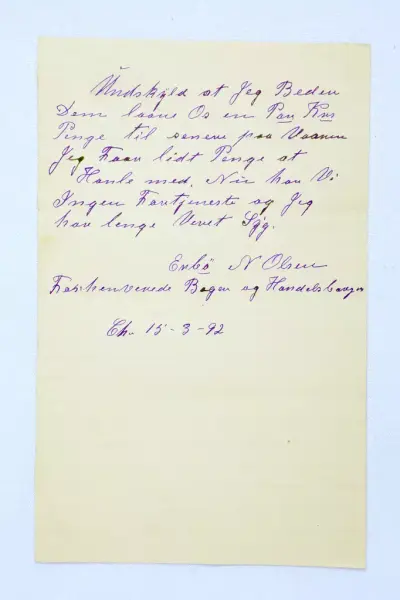 Undskyld at Jeg Beder
Dem laane Os en Par Krs
Penge til senere paa Vaaren
Jeg Faar lidt Penge at
Hanle med. Nu har Vi
Ingen Fortjeneste og Jeg
har lenge Veret Syg.
Enbö N Olsen
Bager og Handels
Ch. 15-3-92